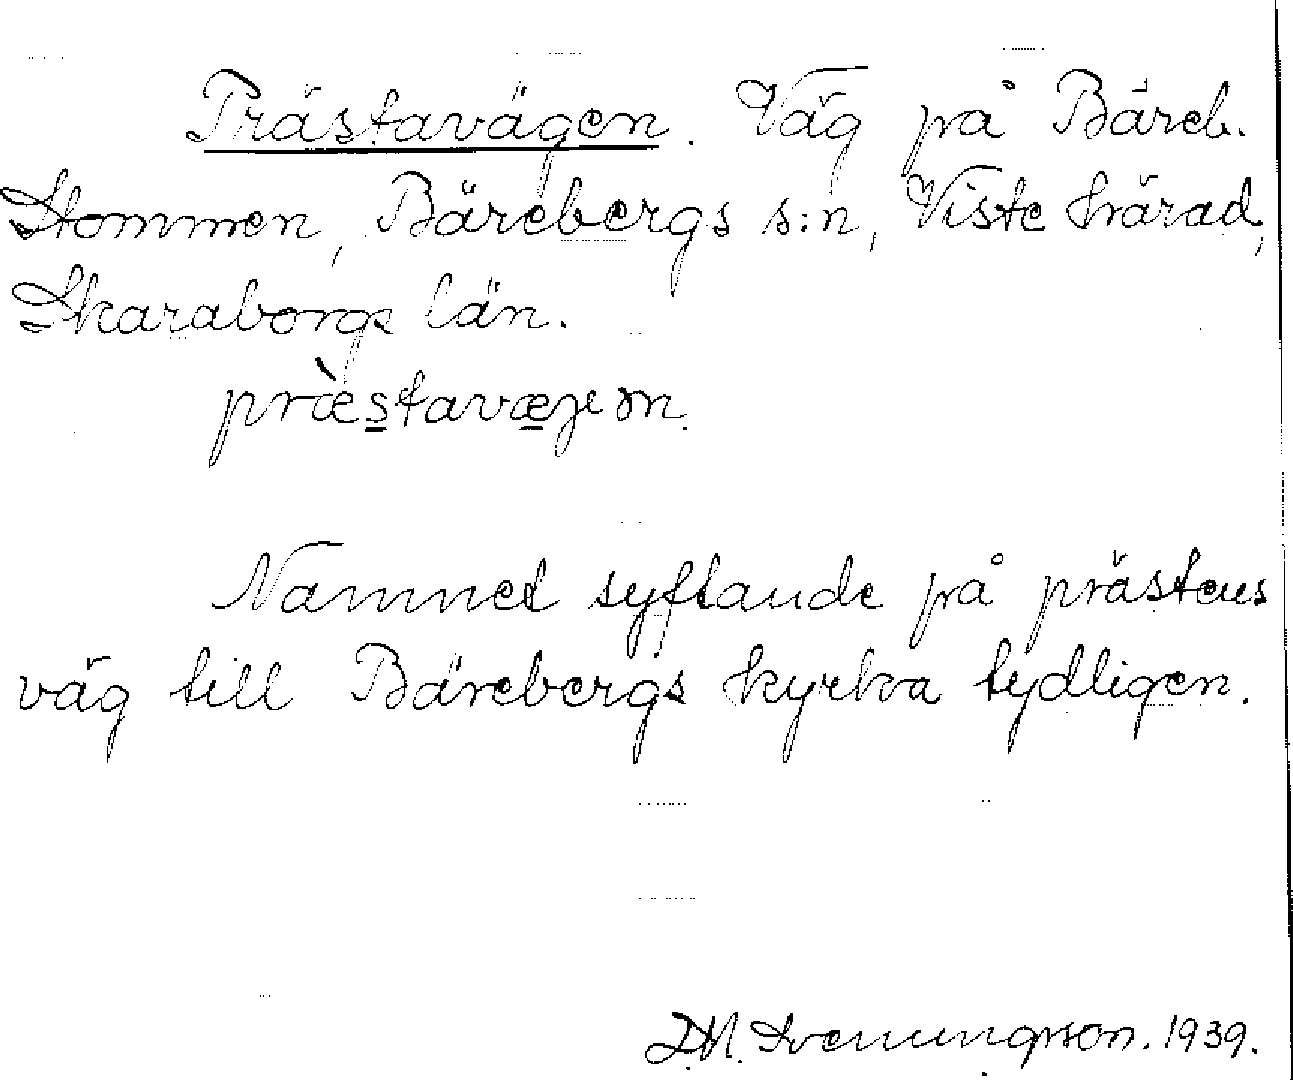 Prästavägen. Väg på Bäreb.
Stommen, Bärebergs s:n, Viste härad,
Skaraborgs län.
præ̀stavæjen.
Namnet syftande på prästens
väg till Bärebergs kyrka tydligen.
D.M. Svenungsson. 1939.